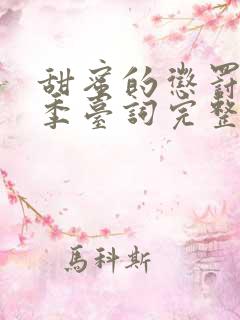 甜蜜的懲罰
季臺詞完整
馬科斯